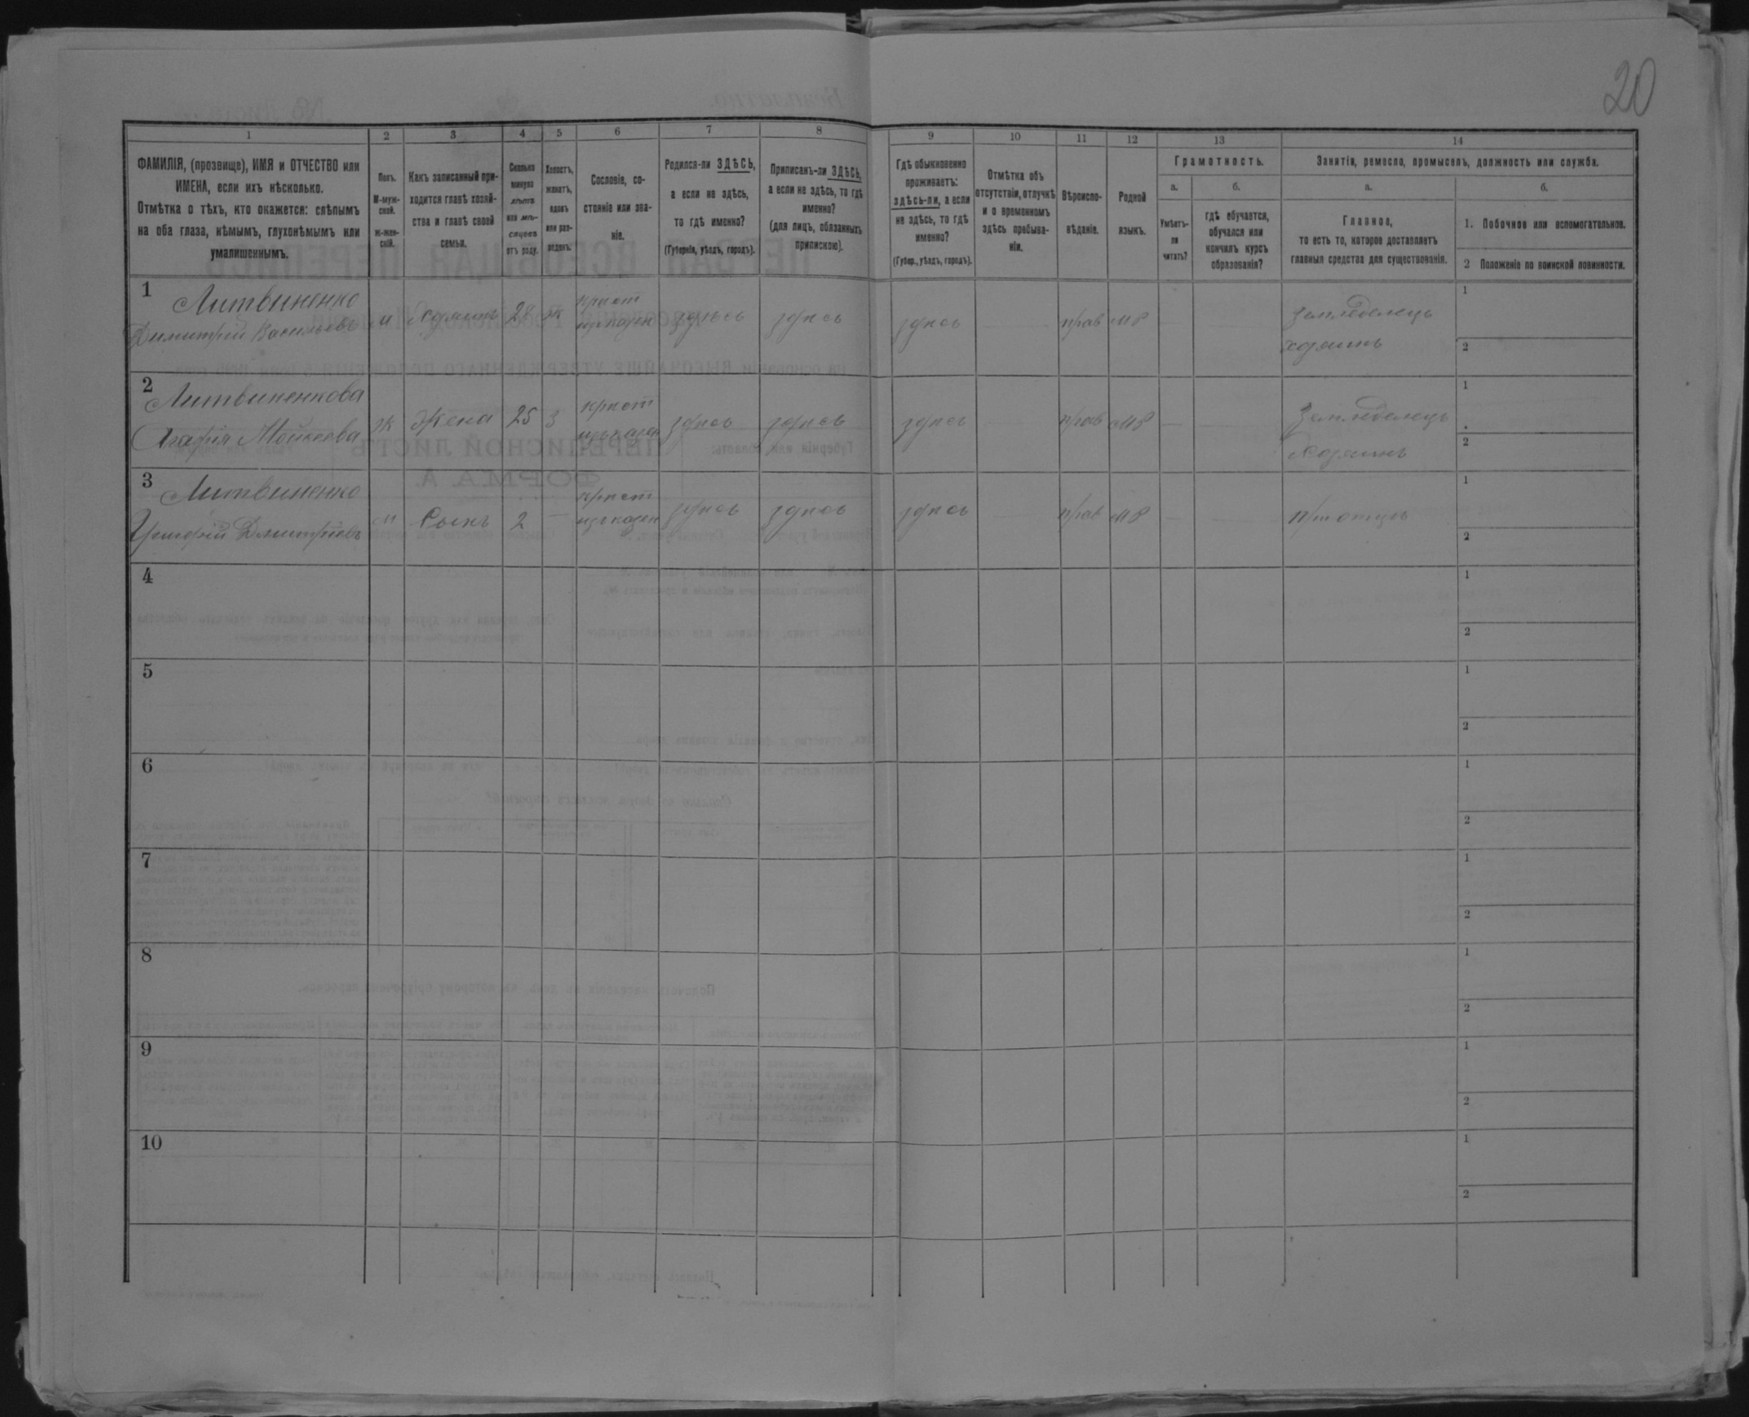 20
1 2 3 4 5 6 7 8 9 10 11 12 13 14
ФАМИЛІЯ, (прозвище), ИМЯ и ОТЧЕСТВО или
ИМЕНА, если ихъ нѣсколько.
Отмѣтка о тѣхъ, кто окажется: слѣпымъ
на оба глаза, нѣмымъ, глухонѣмымъ или
умалишеннымъ.
Полъ.
М-муж-
ской.
Ж-жен-
скій.
Какъ записанный при-
ходится главѣ хозяй-
ства и главѣ своей
семьи.
Сколько
минуло
лѣтъ
или мѣ-
сяцевъ
отъ роду.
Холостъ,
женатъ,
вдовъ
или раз-
веденъ.
Сословіе, со-
стояніе или зва-
ніе.
Родился-ли ЗДѢСЬ,
а если не здѣсь,
то гдѣ именно?
(Губернія, уѣздъ, городъ).
Приписанъ-ли ЗДѢСЬ,
а если не здѣсь, то гдѣ
именно?
(для лицъ, обязанныхъ
припискою).
Гдѣ обыкновенно
проживаетъ:
здѣсь-ли, а если
не здѣсь, то гдѣ
именно?
(Губер., уѣздъ, городъ).
Отмѣтка объ
отсутствіи, отлучкѣ
и о временномъ
здѣсь пребыва-
ніи.
Вѣроиспо-
вѣданіе.
Родной
языкъ.
Грамотность.
а.
Умѣетъ-
ли
читать?
б.
гдѣ обучается,
обучался или
кончилъ курсъ
образованія?
Занятіе, ремесло, промыселъ, должность или служба.
а.
Главное,
то есть то, которое доставляетъ
главныя средства для существованія.
б.
1. Побочное или вспомогательное.
2 Положеніе по воинской повинности.
1 Литвиненко
Димитрій Васильевъ м Хозяинъ 28 ж крест здѣсь здѣсь здѣсь — прав мр — — Земледелецъ
хозяинъ
1
2
2 Литвиненкова
ж Жена 25 з крест здѣсь здѣсь здѣсь — прав мр — — Земледелецъ
Хозяинъ
1
2
3 Литвиненко
Дмитріевъ м Сынъ 2 — крест здѣсь здѣсь здѣсь — прав мр — — при отцѣ
1
2
4
1
2
5
1
2
6
1
2
7
1
2
8
1
2
9
1
2
10
1
2